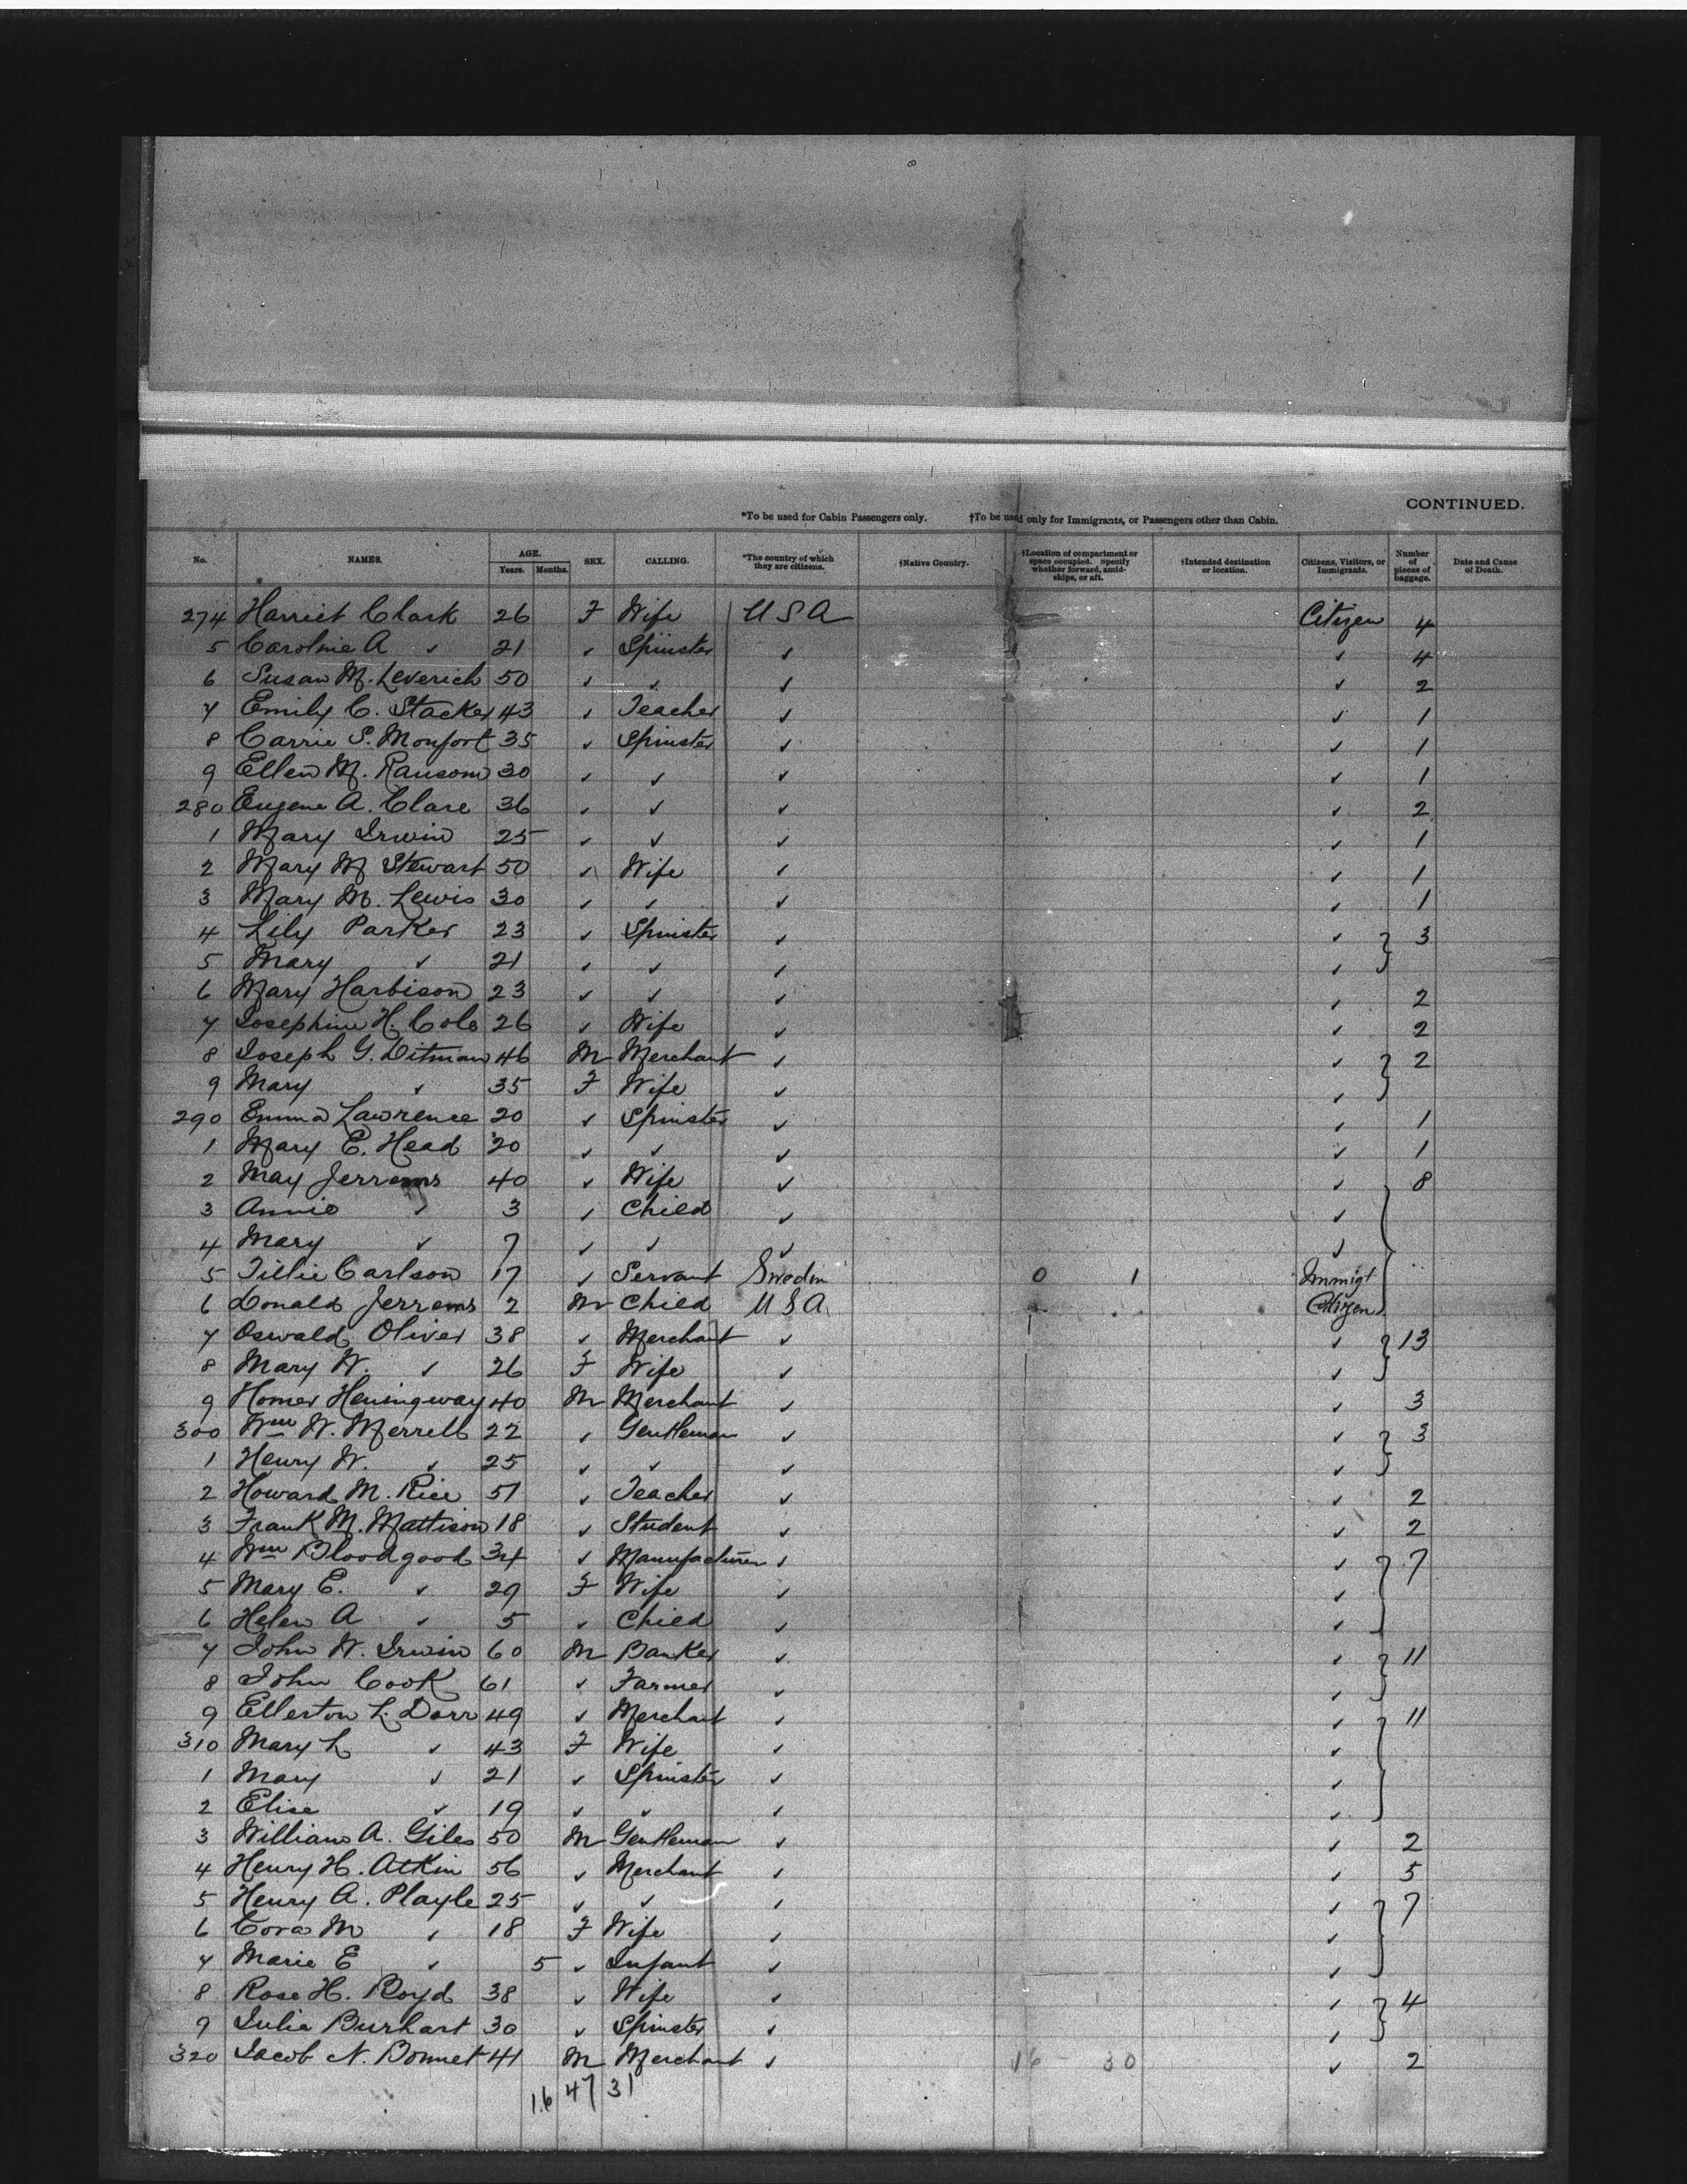 CONTINUED.
*To be used for Cabin Passengers only. †To be used only for Immigrants, or Passengers other than Cabin.
No. NAMES. AGE. Years. Months. SEX. CALLING. *The country of which they are citizens. †Native Country. †Location of compartment or space occupied. Specify whether forward, amidships, or aft. †Intended destination or location. Citizens, Visitors, or Immigrants. Number of pieces of baggage. Date and Cause of Death.
274 Harriet Clark 26 F Wife U S A Citizen 4
5 Caroline A ✓ 21 ✓ Spinster ✓ ✓ 4
6 Susan M. Leverich 50 ✓ ✓ ✓ ✓ 2
7 Emily C. Stacker 43 ✓ Teacher ✓ ✓ 1
8 Carrie S. Monfort 35 ✓ Spinster ✓ ✓ 1
9 Ellen M. Ransom 30 ✓ ✓ ✓ ✓ 1
280 Eugene A. Clare 36 ✓ ✓ ✓ ✓ 2
1 Mary Irwin 25 ✓ ✓ ✓ ✓ 1
2 Mary M Stewart 50 ✓ Wife ✓ ✓ 1
3 Mary M. Lewis 30 ✓ ✓ ✓ ✓ 1
4 Lily Parker 23 ✓ Spinster ✓ ✓ } 3
5 Mary ✓ 21 ✓ ✓ ✓ ✓
6 Mary Harbison 23 ✓ ✓ ✓ ✓ 2
7 Josephine H. Cole 26 ✓ Wife ✓ ✓ 2
8 Joseph G. Ditman 46 M Merchant ✓ ✓ } 2
9 Mary ✓ 35 F Wife ✓ ✓
290 Emma Lawrence 20 ✓ Spinster ✓ ✓ 1
1 Mary E. Head 20 ✓ ✓ ✓ ✓ 1
2 May Jerrems 40 ✓ Wife ✓ ✓ } 8
3 Annie ✓ 3 ✓ Child ✓ ✓
4 Mary ✓ 7 ✓ ✓ ✓ ✓
5 Tillie Carlson 17 ✓ Servant Sweden 0 1 Immigt
6 Donald Jerrems 2 M Child U S A Citizen
7 Oswald Oliver 38 ✓ Merchant ✓ ✓ } 13
8 Mary W. ✓ 26 F Wife ✓ ✓
9 Homer Hemingway 40 M Merchant ✓ ✓ 3
300 Wm W. Merrell 22 ✓ Gentleman ✓ ✓ } 3
1 Henry W. ✓ 25 ✓ ✓ ✓ ✓
2 Howard M. Rice 51 ✓ Teacher ✓ ✓ 2
3 Frank M. Mattison 18 ✓ Student ✓ ✓ 2
4 Wm Bloodgood 34 ✓ Manufacturer ✓ ✓ } 7
5 Mary E. ✓ 29 F Wife ✓ ✓
6 Helen A ✓ 5 ✓ Child ✓ ✓
7 John W. Irwin 60 M Banker ✓ ✓ } 11
8 John Cook 61 ✓ Farmer ✓ ✓
9 Ellerton L. Dorr 49 ✓ Merchant ✓ ✓ } 11
310 Mary L ✓ 43 F Wife ✓ ✓
1 Mary ✓ 21 ✓ Spinster ✓ ✓
2 Elise ✓ 19 ✓ ✓ ✓ ✓
3 William A. Giles 50 M Gentleman ✓ ✓ 2
4 Henry H. Atkin 56 ✓ Merchant ✓ ✓ 5
5 Henry A. Playle 25 ✓ ✓ ✓ ✓ } 7
6 Cora M ✓ 18 F Wife ✓ ✓
7 Marie E ✓ 5 ✓ Infant ✓ ✓
8 Rose H. Boyd 38 ✓ Wife ✓ ✓ } 4
9 Julia Burhart 30 ✓ Spinster ✓ ✓
320 Jacob N. Bonnet 41 M Merchant ✓ 16 30 ✓ 2
16 47 31